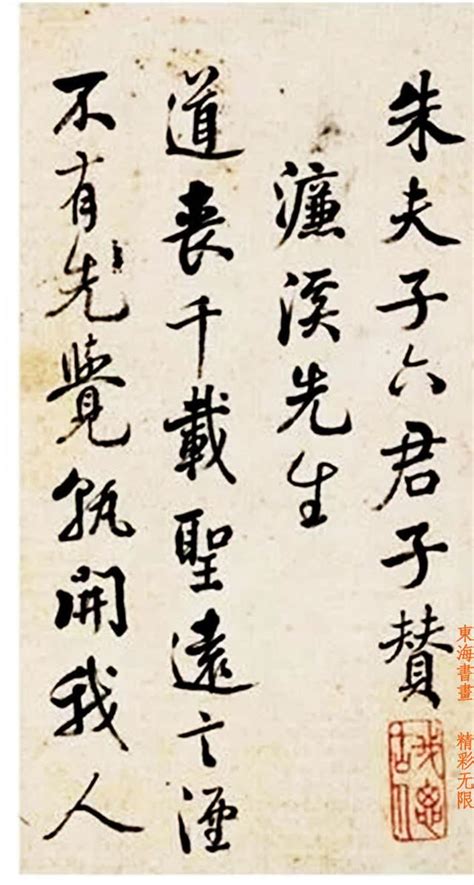 朱夫子六君子贊
濂溪先生
道喪千載聖遠言湮
不有先覺孰開我人
東海書畫 精彩无限